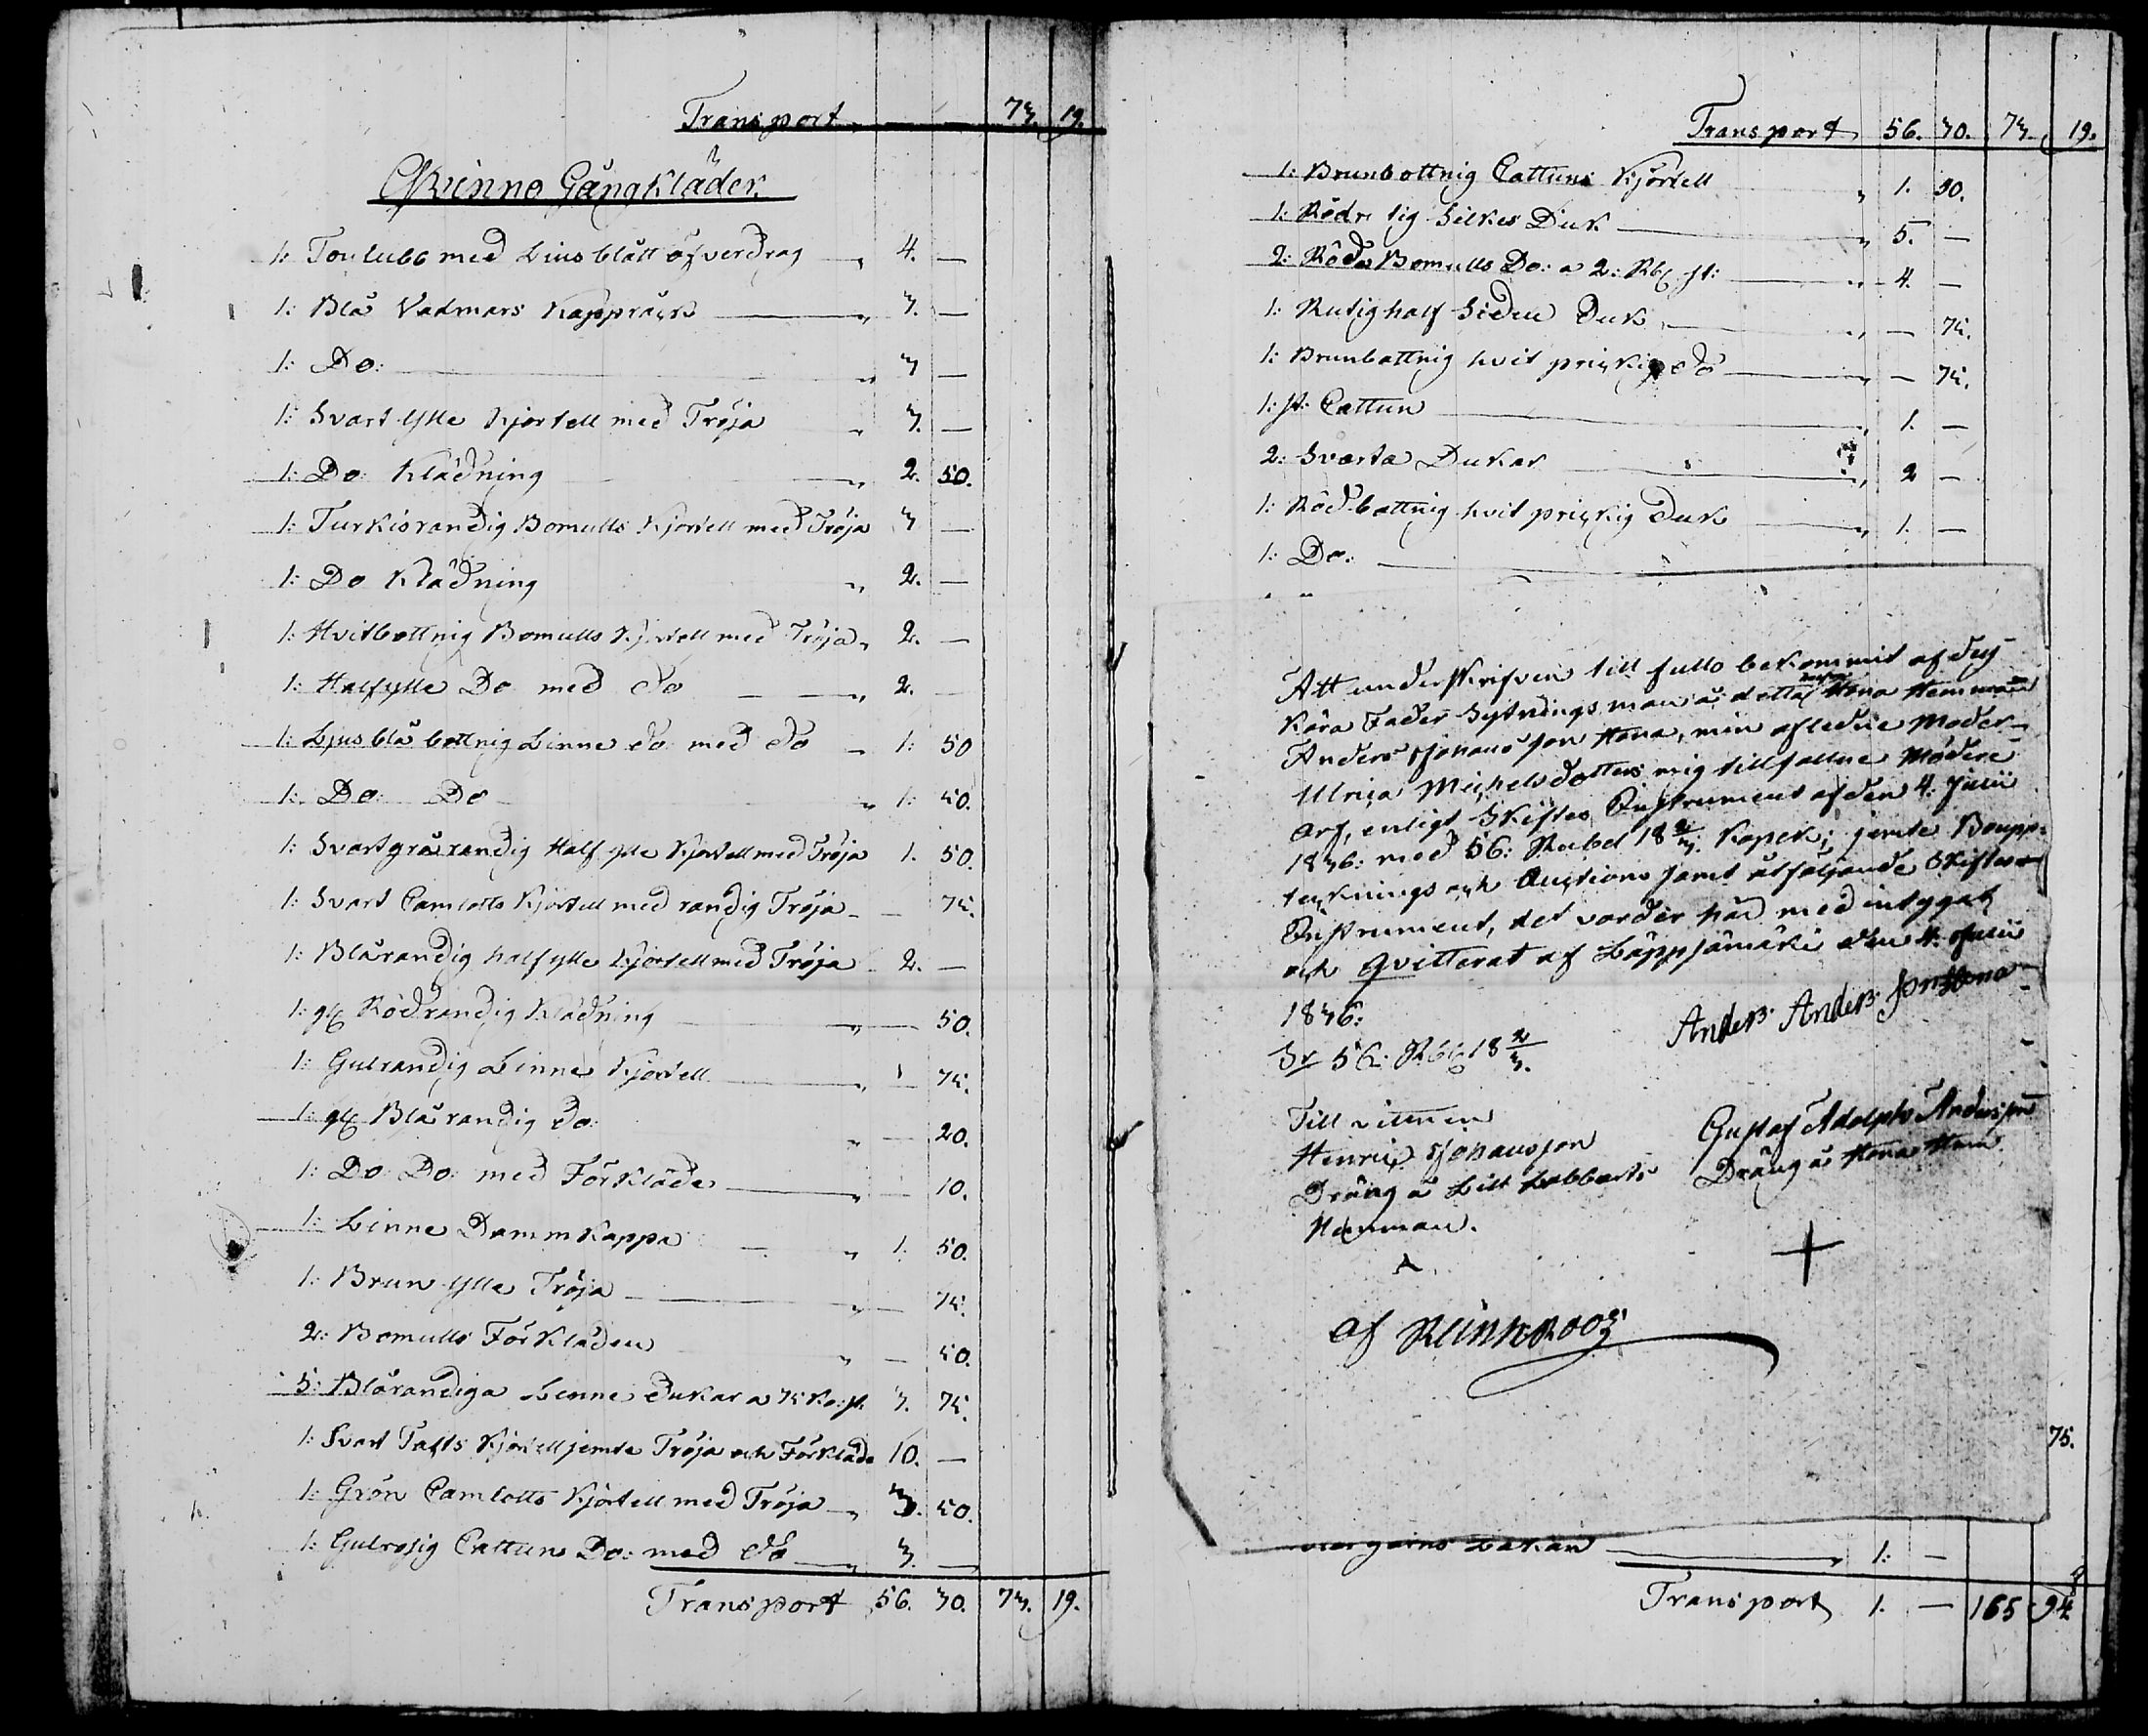 Transport — — 73. 19.
Qvinno Gångkläder.
1: Toulubb med Liusblått öfverdrag " 4. —
1: Blå Vadmars Kappräck " 3. —
1: Do: " 3 —
1: Svart Ylle Kjortell med Tröja " 3. —
1: Do: Klädning " 2. 50.
1: Turkisrandig Bomulls Kjortell med Tröja 3 —
1: Do Klädning " 2. —
1: Hvitbottnig Bomulls Kjortell med Tröja " 2. —
1: Halfylle Do med do " 2. —
1: Ljusblå bottnig Linne do med do " 1: 50
1: Do: Do " 1: 50.
1: Svartgrårandig Half ylle Kjortell med Tröja 1. 50.
1: Svart Camlotts Kjortell med randig Tröja — 75.
1: Blårandig halfylle Kjortell med Tröja 2. —
1: gl Rödrandig Klädning " — 50.
1: Gulrandig Linne Kjortell " — 75.
1: gl Blårandig Do: " — 20.
1: Do: Do: med Förkläde " — 10.
1: Linne Dammkappa " 1. 50.
1: Brun Ylle Tröja " — 75.
2: Bomulls Förkläden " — 50.
5: Blårandiga Linne Dukar a 75 Ko: st. 3. 75.
1: Svart Tafts Kjortell jemte Tröja och Förkläde 10. —
1: Grön Camlotts Kjortell med Tröja " 3. 50.
1: Gulrosig Cattuns Do: med do " 3. —
Transport 56. 30. 73. 19.
Transport 56. 30. 73. 19.
1: Brunbottnig Cattuns Kjortell " 1. 50.
1: Silkes Duk " 5. —
2: Röda Bomulls Do: a 2: Rbl st: " 4. —
1: Rutig half Siden Duk " — 75.
1: Brunbottnig hvit prickig do " — 75.
1: st: Cattun " 1. —
2: Svarta Dukar " 2 —
1: Rödbottnig hvit prickig Duk " 1. —
1: Do:
Att underskrifven till fullo bekommit af dess
Kära Fader Sytningsman å detta Hona Hemman
Anders Johansson Hona, min afledne Moder
Ulrica Michelsdotters mig tillfallne Möderne
Arf, enligt Skiftes Instrument af den 4: Julii
1836: med 56: Rubel 18 2/3. Kopek; jemte Boupp-
tecknings och Auctions samt åtföljande Skiftes
Instrument, det varder här med intygat
och Qvitterat af Lappjämäki den 4: Julii
1836:
Sr 56: Rbl 18 2/3.
Anders Andersson Hona
Till vittnen
Henric Johansson
Dräng å Lill Labbarts
Hemman.
Gustaf Adolph Andersson
Dräng å Hona Hem
+
75.
1: —
Transport 1. — 165 94